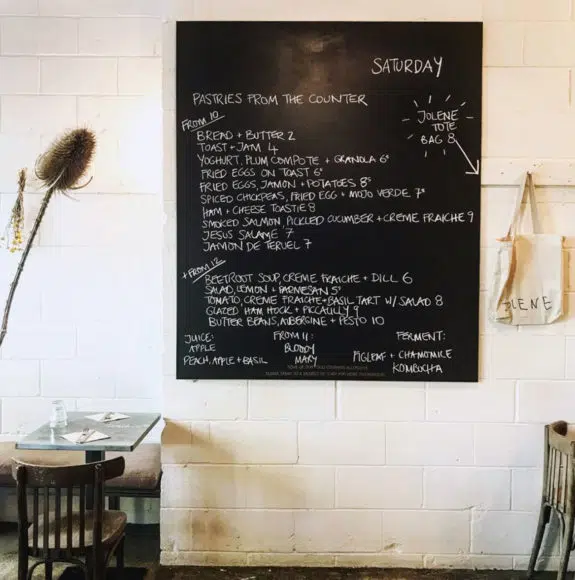 SATURDAY
PASTRIES FROM THE COUNTER
JOLENE
TOTE
BAG 8
FROM 10
BREAD + BUTTER 2
TOAST + JAM 4
YOGHURT, PLUM COMPOTE + GRANOLA 6⁵
FRIED EGGS ON TOAST 6⁵
FRIED EGGS, JAMON + POTATOES 8⁵
SPICED CHICKPEAS, FRIED EGG + MOJO VERDE 7⁵
HAM + CHEESE TOASTIE 8
SMOKED SALMON PICKLED CUCUMBER + CREME FRAICHE 9
JESUS SALAME 7
JAMON DE TERUEL 7
+ FROM 12
BEETROOT SOUP, CREME FRAICHE + DILL 6
SALAD, LEMON + PARMESAN 5⁵
TOMATO, CREME FRAICHE + BASIL TART W/ SALAD 8
GLAZED HAM HOCK + PICCALILLY 9
BUTTER BEANS, AUBERGINE + PESTO 10
JUICE:
APPLE
PEACH, APPLE + BASIL
FROM 11:
BLOODY
MARY
FERMENT:
FIGLEAF + CHAMOMILE
KOMBUCHA
OLENE